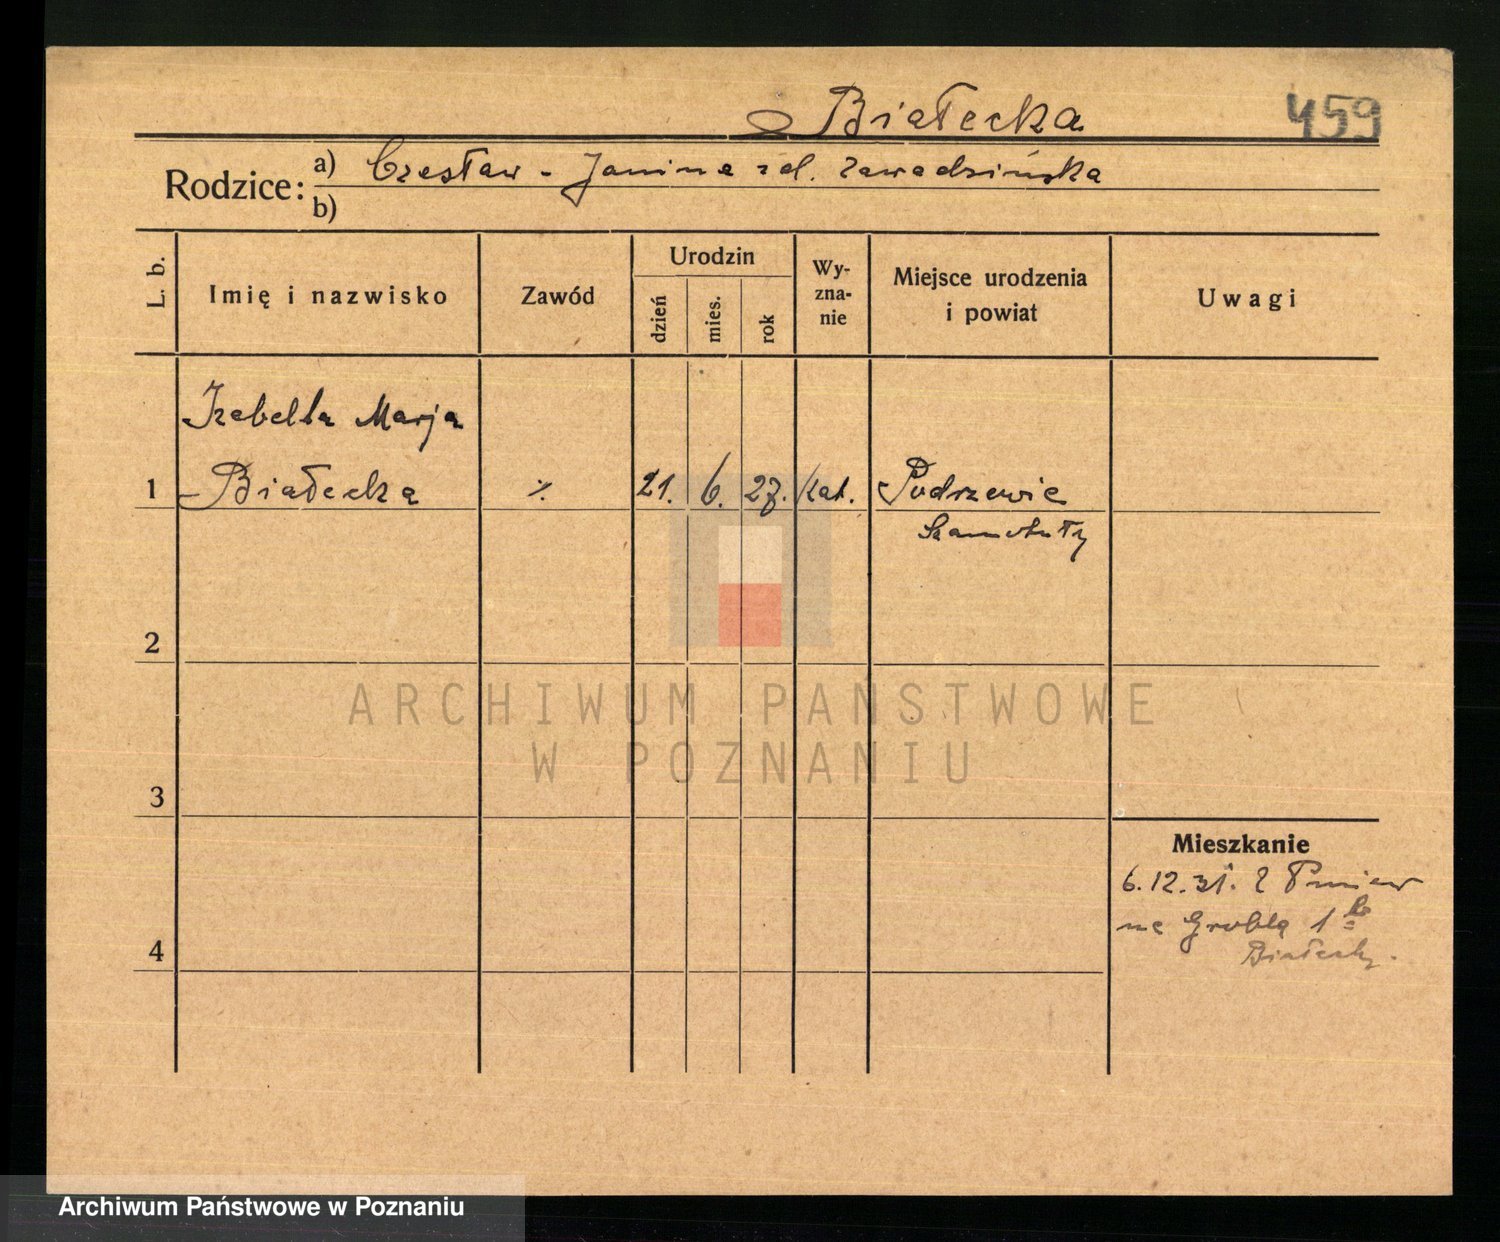 Białecka 459
Rodzice: a) Czesław - Janina zd. Zawadzińska
b)
L. b. Imię i nazwisko Zawód Urodzin dzień mies. rok Wyznanie Miejsce urodzenia i powiat Uwagi
Izabella Marja
1 Białecka ٪ 21. 6. 27. kat. Podrzewie
Szamotuły
2
ARCHIWUM PAŃSTWOWE
W POZNANIU
3
Mieszkanie
6.12.31. z Pniew
na Groblą 1
4 Białecky.
Archiwum Państwowe w Poznaniu